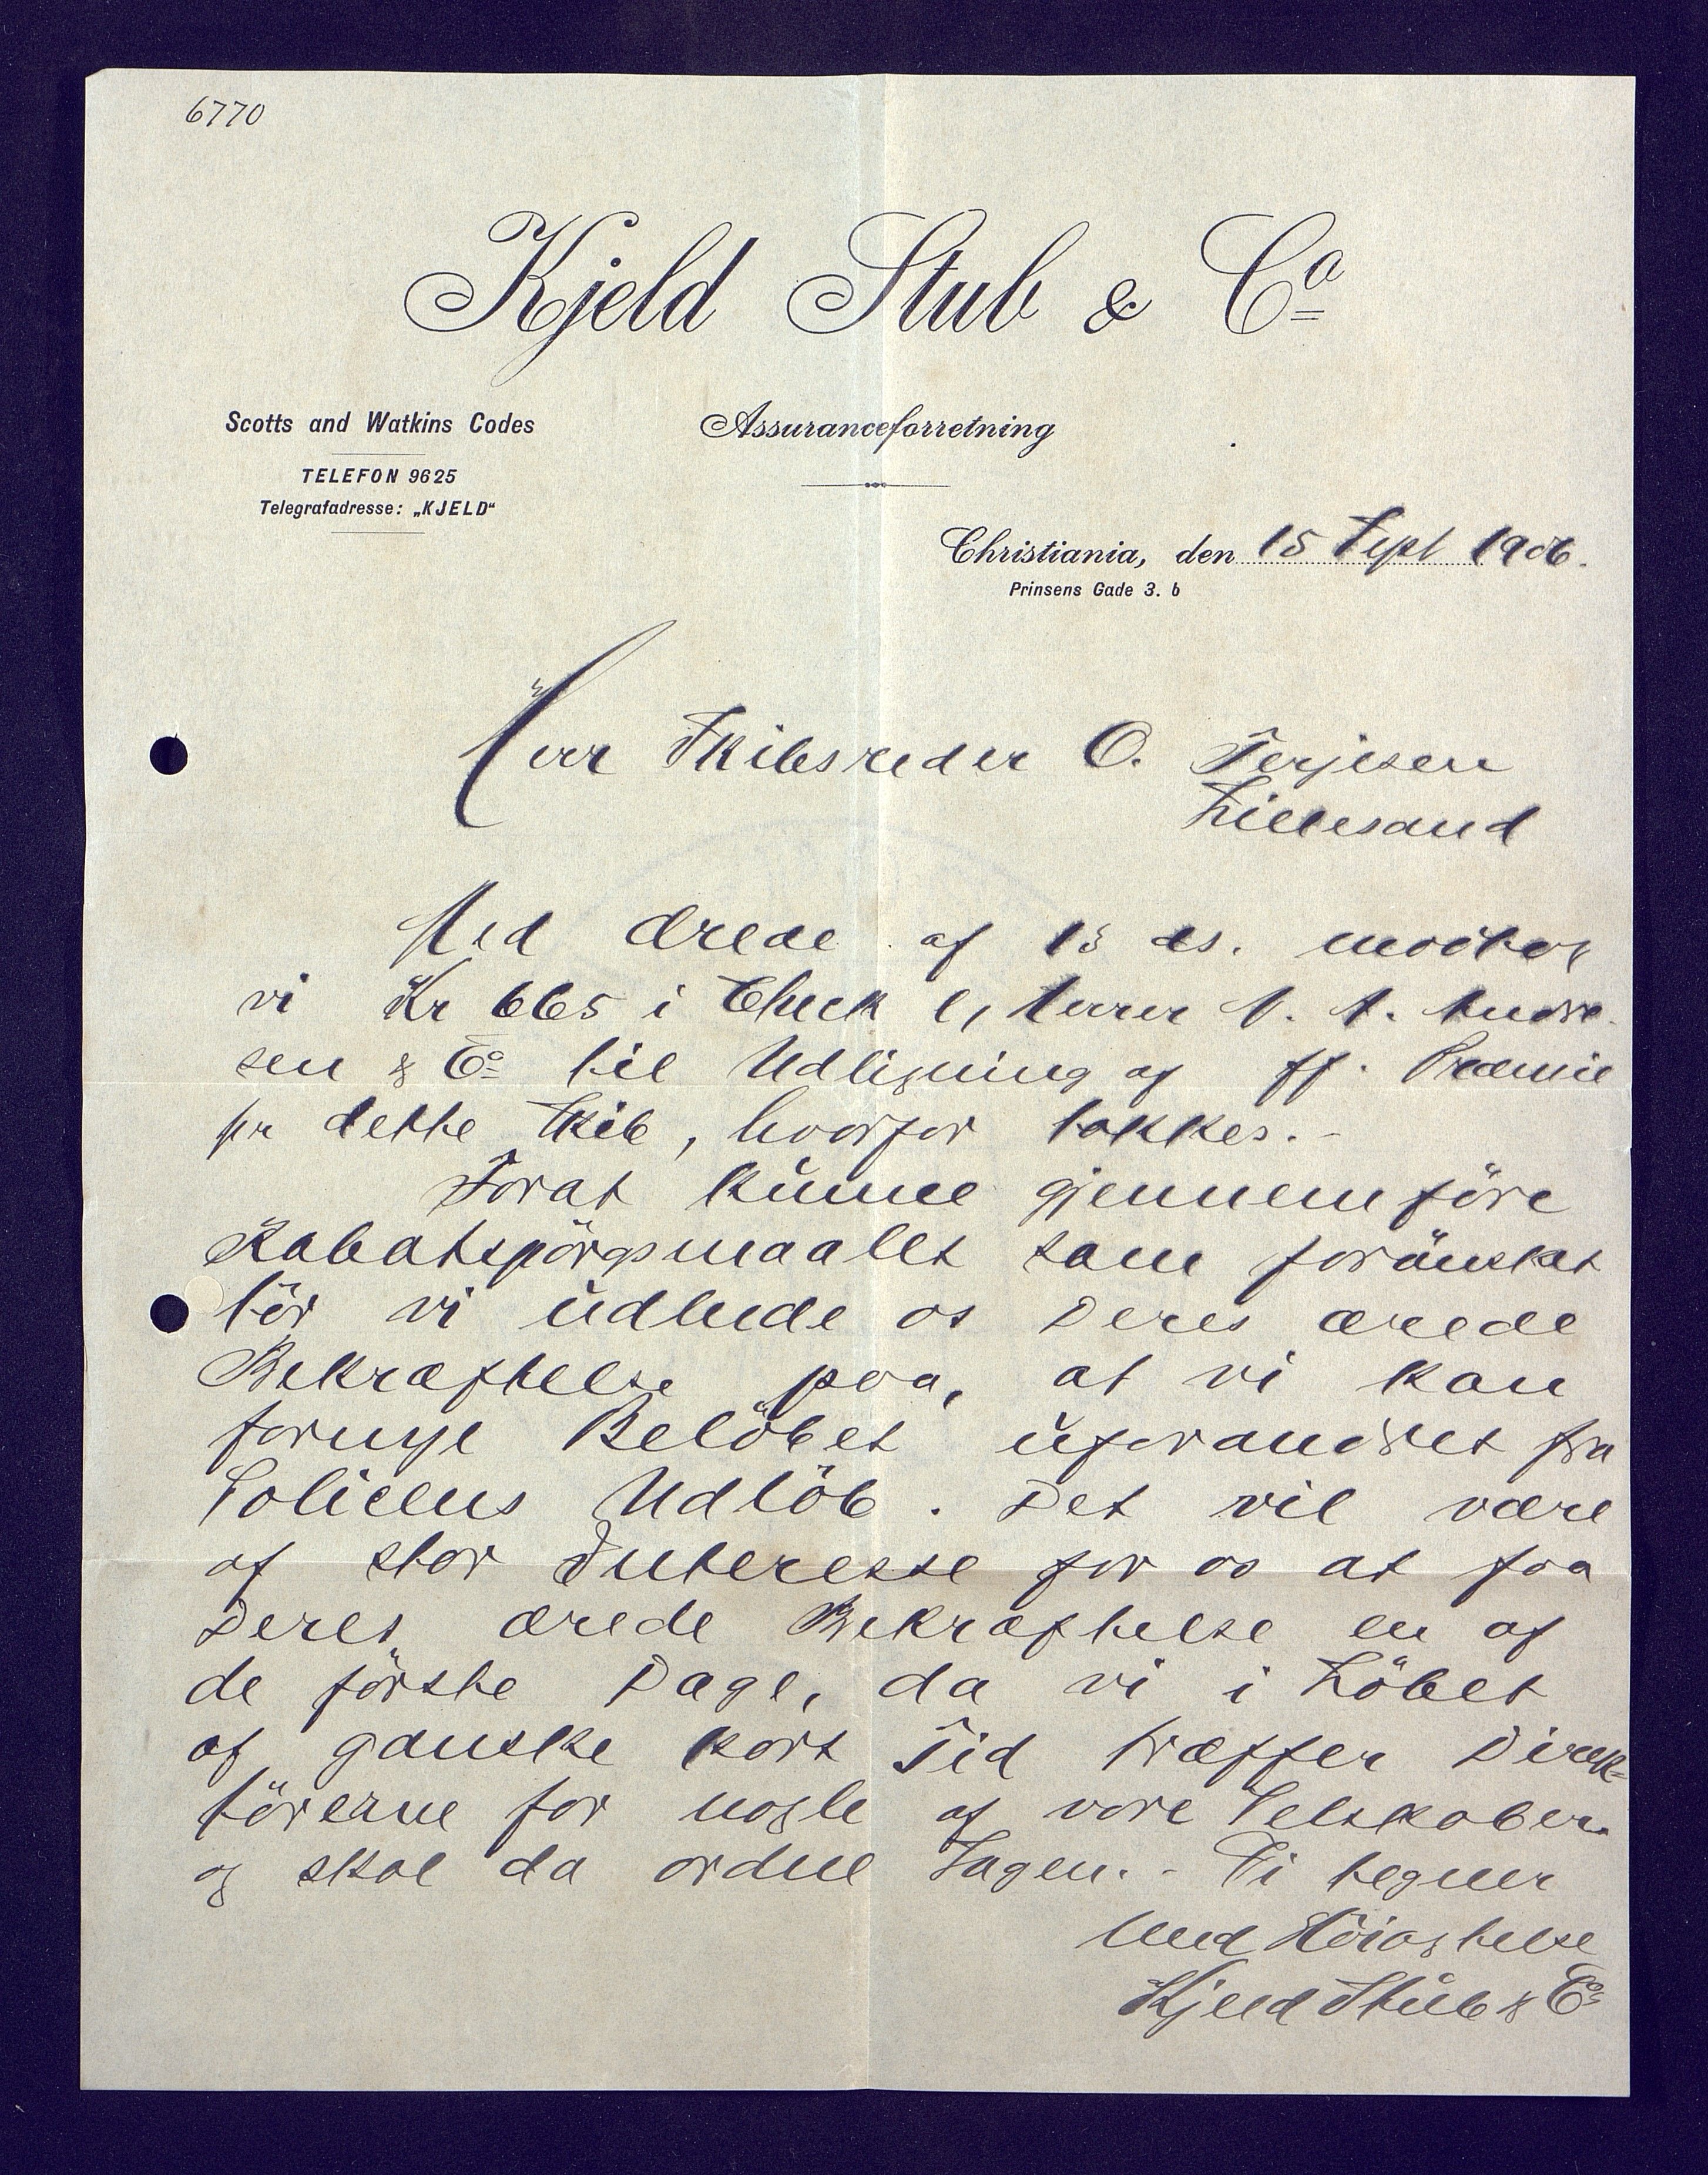 6770
Kjeld Stub & Co
Scotts and Watkins Codes
Assuranceforretning
TELEFON 9625
Telegrafadresse: „KJELD“
Christiania, den 15 Sept 1906.
Prinsens Gade 3. b
Herr Skibsreder O. Terjesen
Lillesand
Med ærede af 13 ds. modtog
vi Kr 665 i Check Herrer N. A. Andre
sen & Co til Udligning af ff. Præmie
pr dette Skib, hvorfor takkes.-
Forat kunne gjennemföre
Rabatspörgsmaalet som forönsket
tör vi udbede os Deres ærede
Bekræftelse paa, at vi kan
fornye Belöbet uforandret fra
Policens Udlöb. Det vil være
af stor Interesse for os at faa
Deres ærede Bekræftelse en af
de förste Dage, da vi i Löbet
af ganske kort Tid træffer Direk-
törerne for nogle af vore Selskaber
og skal da ordne Sagen.- Vi tegner
Med Höiagtelse
Kjeld Stub & Co